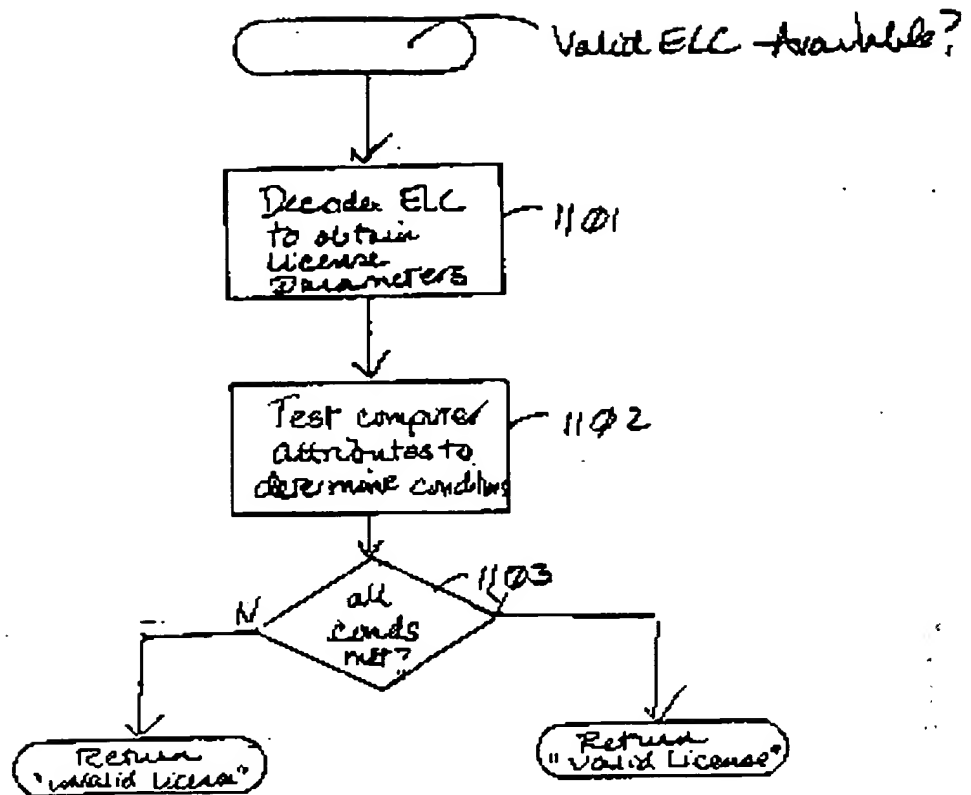 Valid ELC Available?
Decoder ELC
to obtain
License
Parameters
1101
Test computer
attributes to
determine conditions
1102
1103
all
conds
met?
N
Return
"invalid License"
Return
"Valid License"